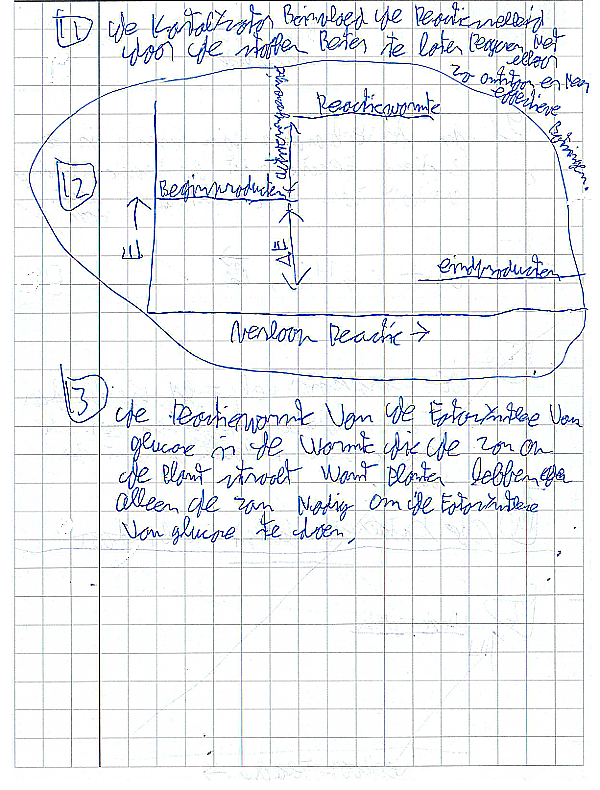 11 de Katalizator Beinvloed de Reactiesnelheid
door de stoffen Beter te laten Reageren met
elkaar
zo ontstaan er meer
effectieve
Botsingen.
12
Reactiewarmte
Beginproducten
E →
ΔE
eindproducten
Verloop Reactie →
13 de reactiewarmte Van de Fotosynthese Van
glucose is de Warmte die de zon on
de Plant straalt Want Planten hebben
alleen de zon Nodig om de Fotosynthese
Van glucose te doen.